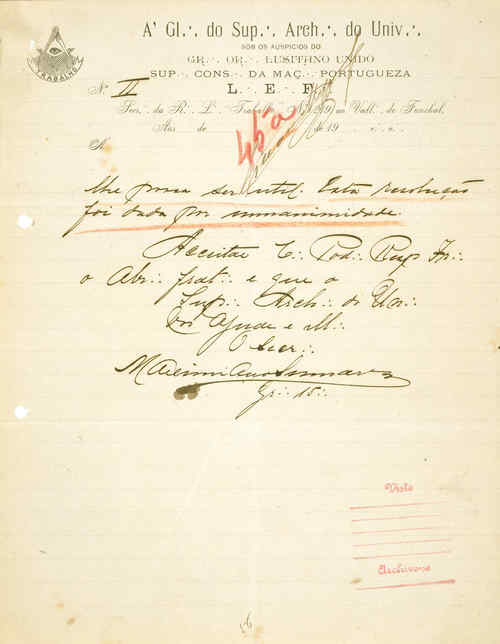 A' Gl∴ do Sup∴ Arch∴ do Univ∴
SOB OS AUSPICIOS DO
GR∴ OR∴ LUSITANO UNIDO
SUP∴ CONS∴ DA MAÇ∴ PORTUGUEZA
TRABALHO
Nº II
L∴ E∴ F∴
Secr∴ da R∴ L∴ Trabalho, Nº ao Vall∴ de Funchal,
Aos de de 19
45a
N
lhe possa ser util. Esta resolução
foi dada por unanimidade.
Acceitae C∴ Pod∴ Resp∴ Ir∴
o Abr∴ frat∴ e que o
Sup∴ Arch∴ do Un∴
Vos Ajude e Ill∴
O Secr∴
Maximiano
Gr∴ 18∴
Visto
Archive-se